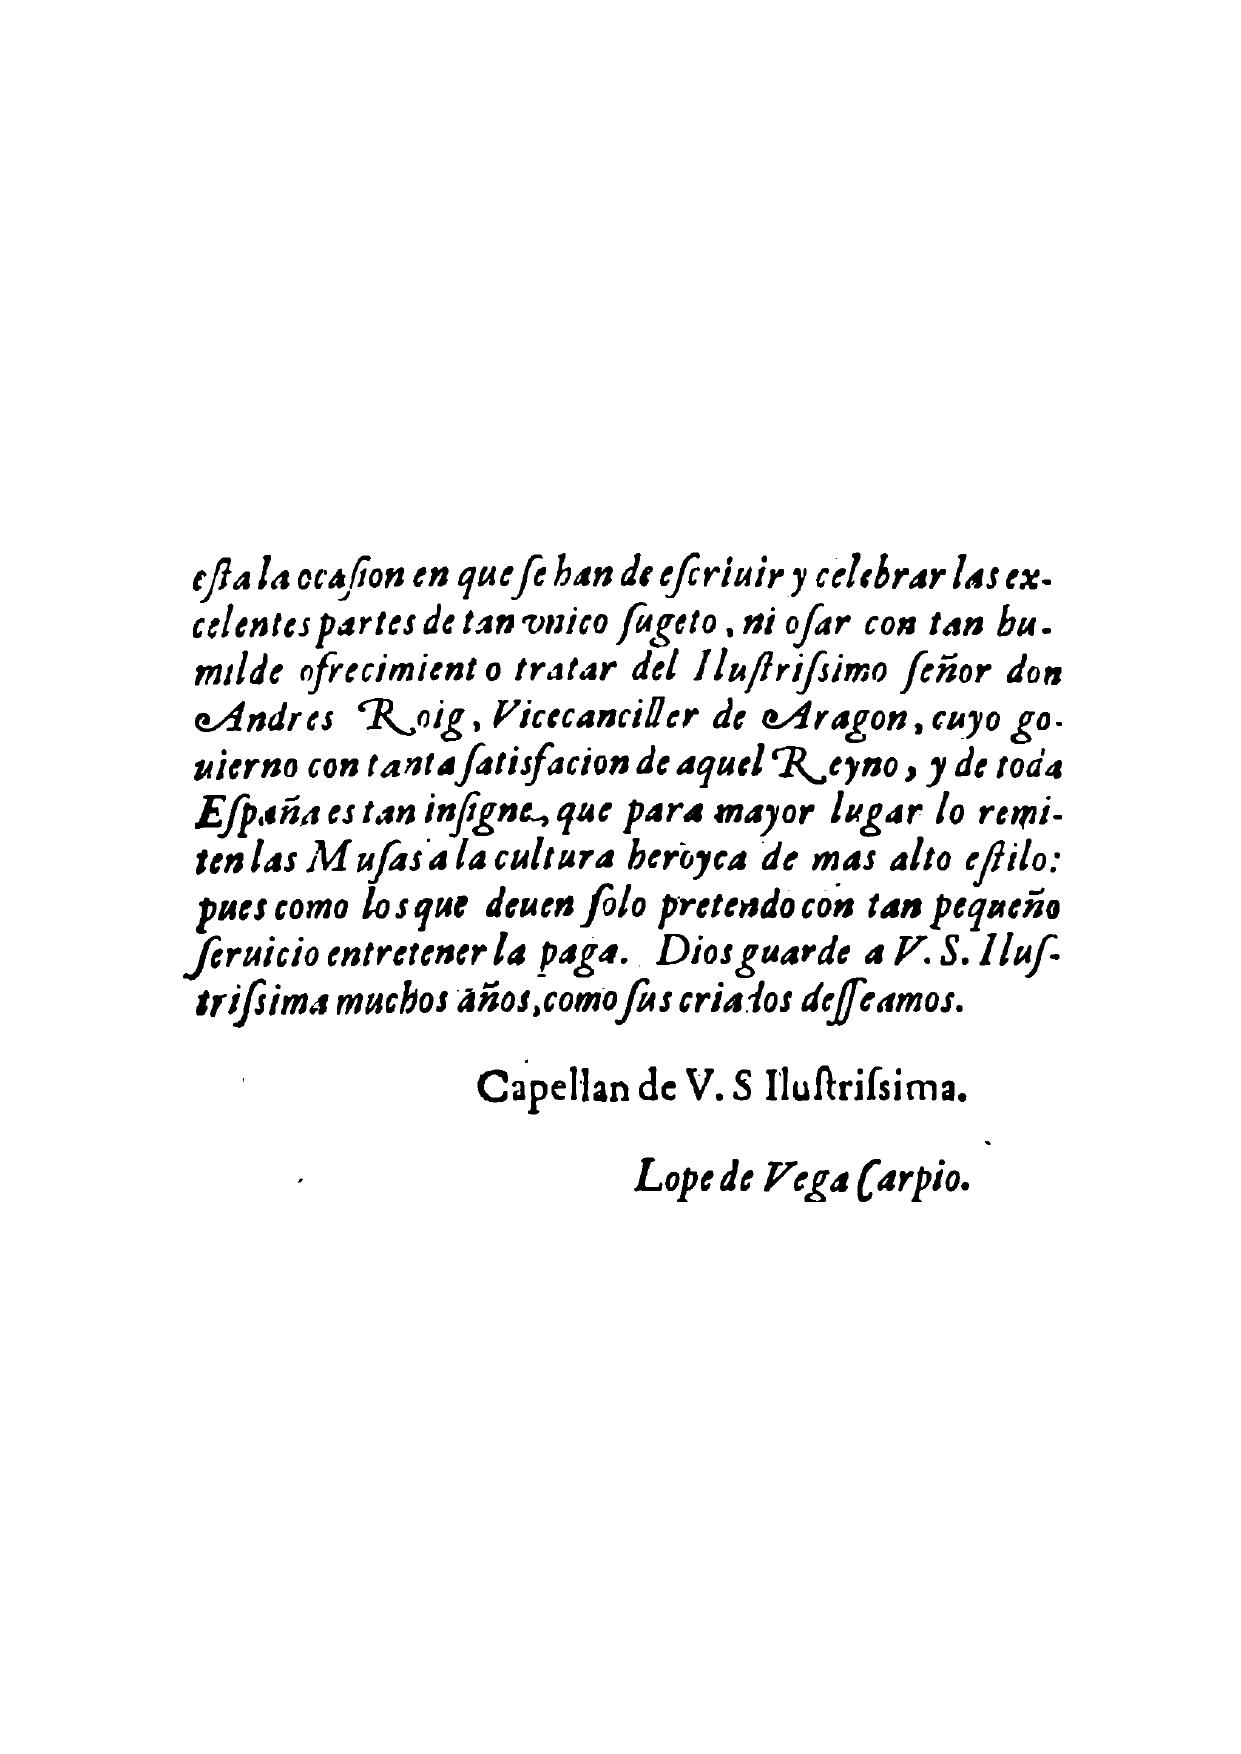 eſta la ocaſion en que ſe han de eſcriuir y celebrar las ex-
celentes partes de tan vnico ſugeto, ni oſar con tan hu-
milde ofrecimiento tratar del Iluſtriſsimo ſeñor don
Andres Roig, Vicecanciller de Aragon, cuyo go-
uierno con tanta ſatisfacion de aquel Reyno, y de toda
Eſpaña es tan inſigne, que para mayor lugar lo remi-
ten las Muſas a la cultura heroyca de mas alto eſtilo:
pues como los que deuen ſolo pretendo con tan pequeño
ſeruicio entretener la paga. Dios guarde a V. S. Iluſ-
triſsima muchos años, como ſus criados deſſeamos.
Capellan de V. S Iluſtriſsima.
Lope de Vega Carpio.